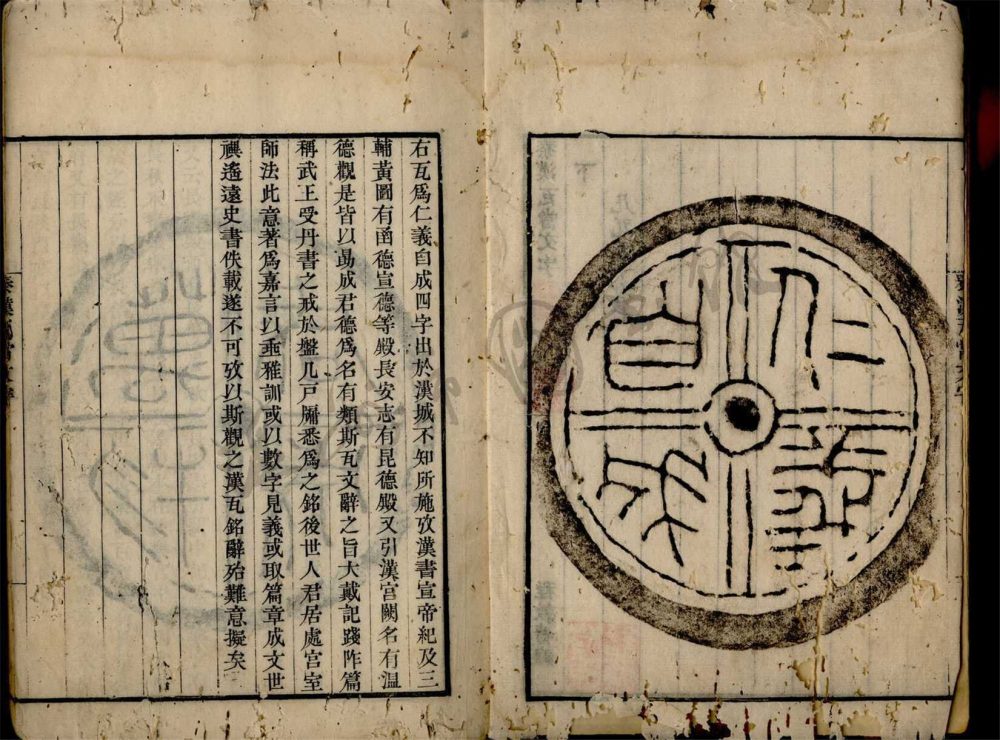 仁義
自成
右瓦爲仁義自成四字出於漢城不知所施攷漢書宣帝紀及三
輔黃圖有函德宣德等殿長安志有昆德殿又引漢宮闕名有溫
德觀是皆以勗成君德爲名有類斯瓦文辭之旨大戴記踐阼篇
稱武王受丹書之戒於盤几戸牖悉爲之銘後世人君居處宮室
師法此意著爲嘉言以垂雅訓或以數字見義或取篇章成文世
禩遙遠史書佚載遂不可攷以斯觀之漢瓦銘辭殆難意擬矣